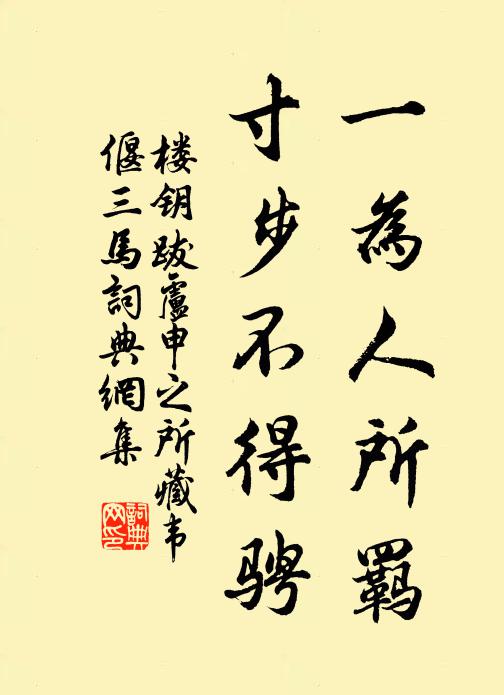 一為人所羈
寸步不得骋
楼钥跋盧申之所藏韦
偃三馬詞典網集
詞典网印